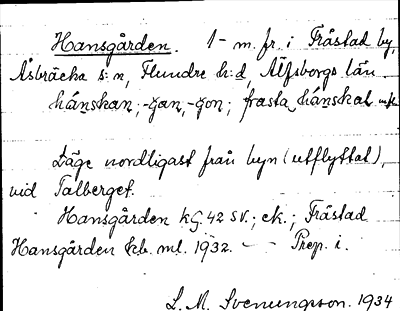 Hansgården. 1 - m. fr. i Fråstad by,
Åsbräcka s:n, Flundre h:d, Älfsborgs län.
hánskan, -gan, -gon; frasta hánskal
Läge nordligast från byn (utflyttat),
vid Talberget.
Hansgården kG. 42 SV.; ek.; Fråstad
Hansgården Eb. ml. 1932. - - Prep. i.
L. M. Svenungsson. 1934